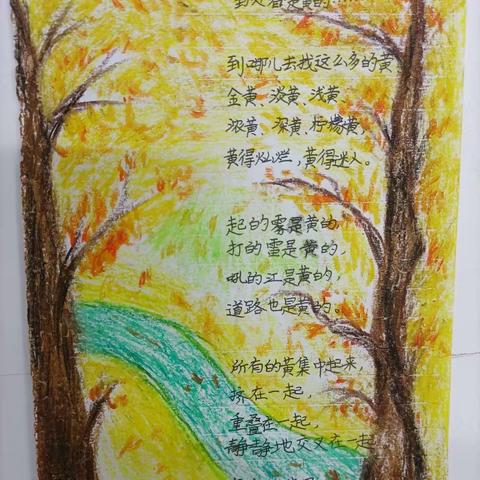 到处都是黄的……
到哪儿去找这么多的黄
金黄、淡黄、浅黄、
浓黄、深黄、柠檬黄,
黄得灿烂,黄得迷人。
起的雾是黄的
打的雷是黄的,
吼的江是黄的,
道路也是黄的。
所有的黄集中起来,
挤在一起,
重叠在一起,
静静地交叉在一起